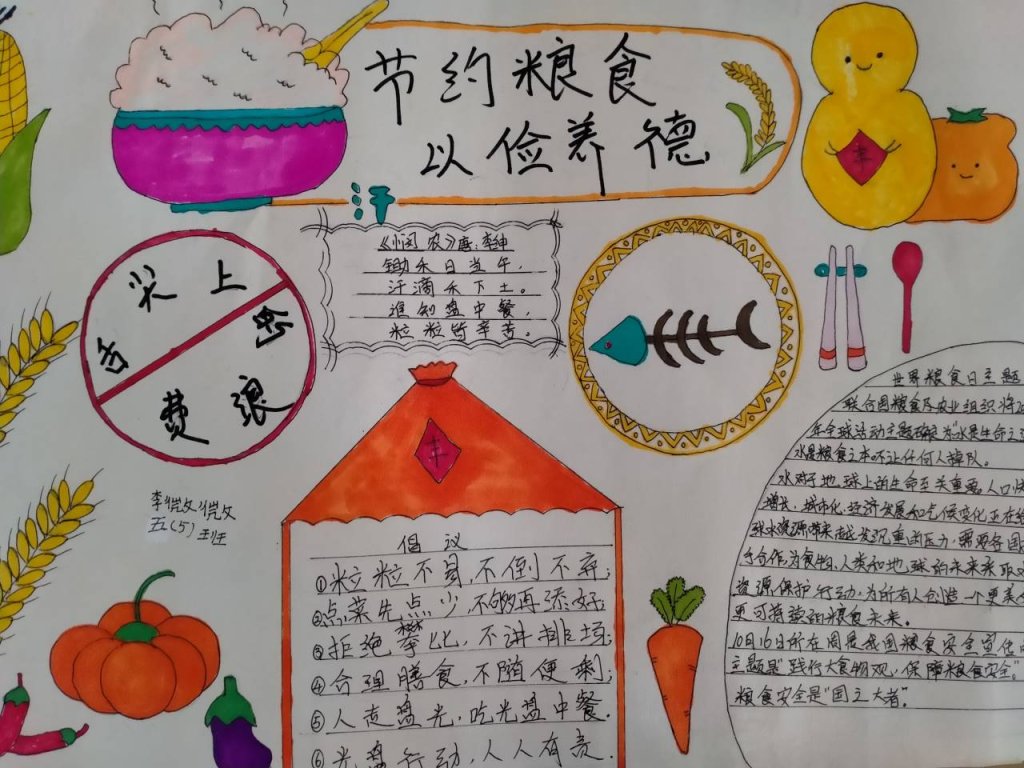 节约粮食
以俭养德
丰
舌尖上的
浪费
《悯农》唐.李绅
锄禾日当午,
汗滴禾下土。
谁知盘中餐,
粒粒皆辛苦。
丰
李恺文.恺文
五(5)班
倡议
①粒粒不易,不倒不弃;
②点菜先点少,不够再添好;
③拒绝攀比,不讲排场;
④合理膳食,不随便剩;
⑤人走盘光,吃光盘中餐.
⑥光盘行动,人人有责.
世界粮食日主题
联合国粮食及农业组织将
年全球活动主题确定为"水是生命之
水是粮食之本不让任何人掉队。
水对于地球上的生命至关重要,人口快
增长、城市化、经济发展和气候变化正在给
球水资源带来越发沉重的压力,需要各国
手合作为食物、人类和地球的未来采取
资源保护行动,为所有人创造一个更美
更可持续的粮食未来。
10月16日所在周是我国粮食安全宣传
主题是"践行大食物观,保障粮食安全"
粮食安全是"国之大者".